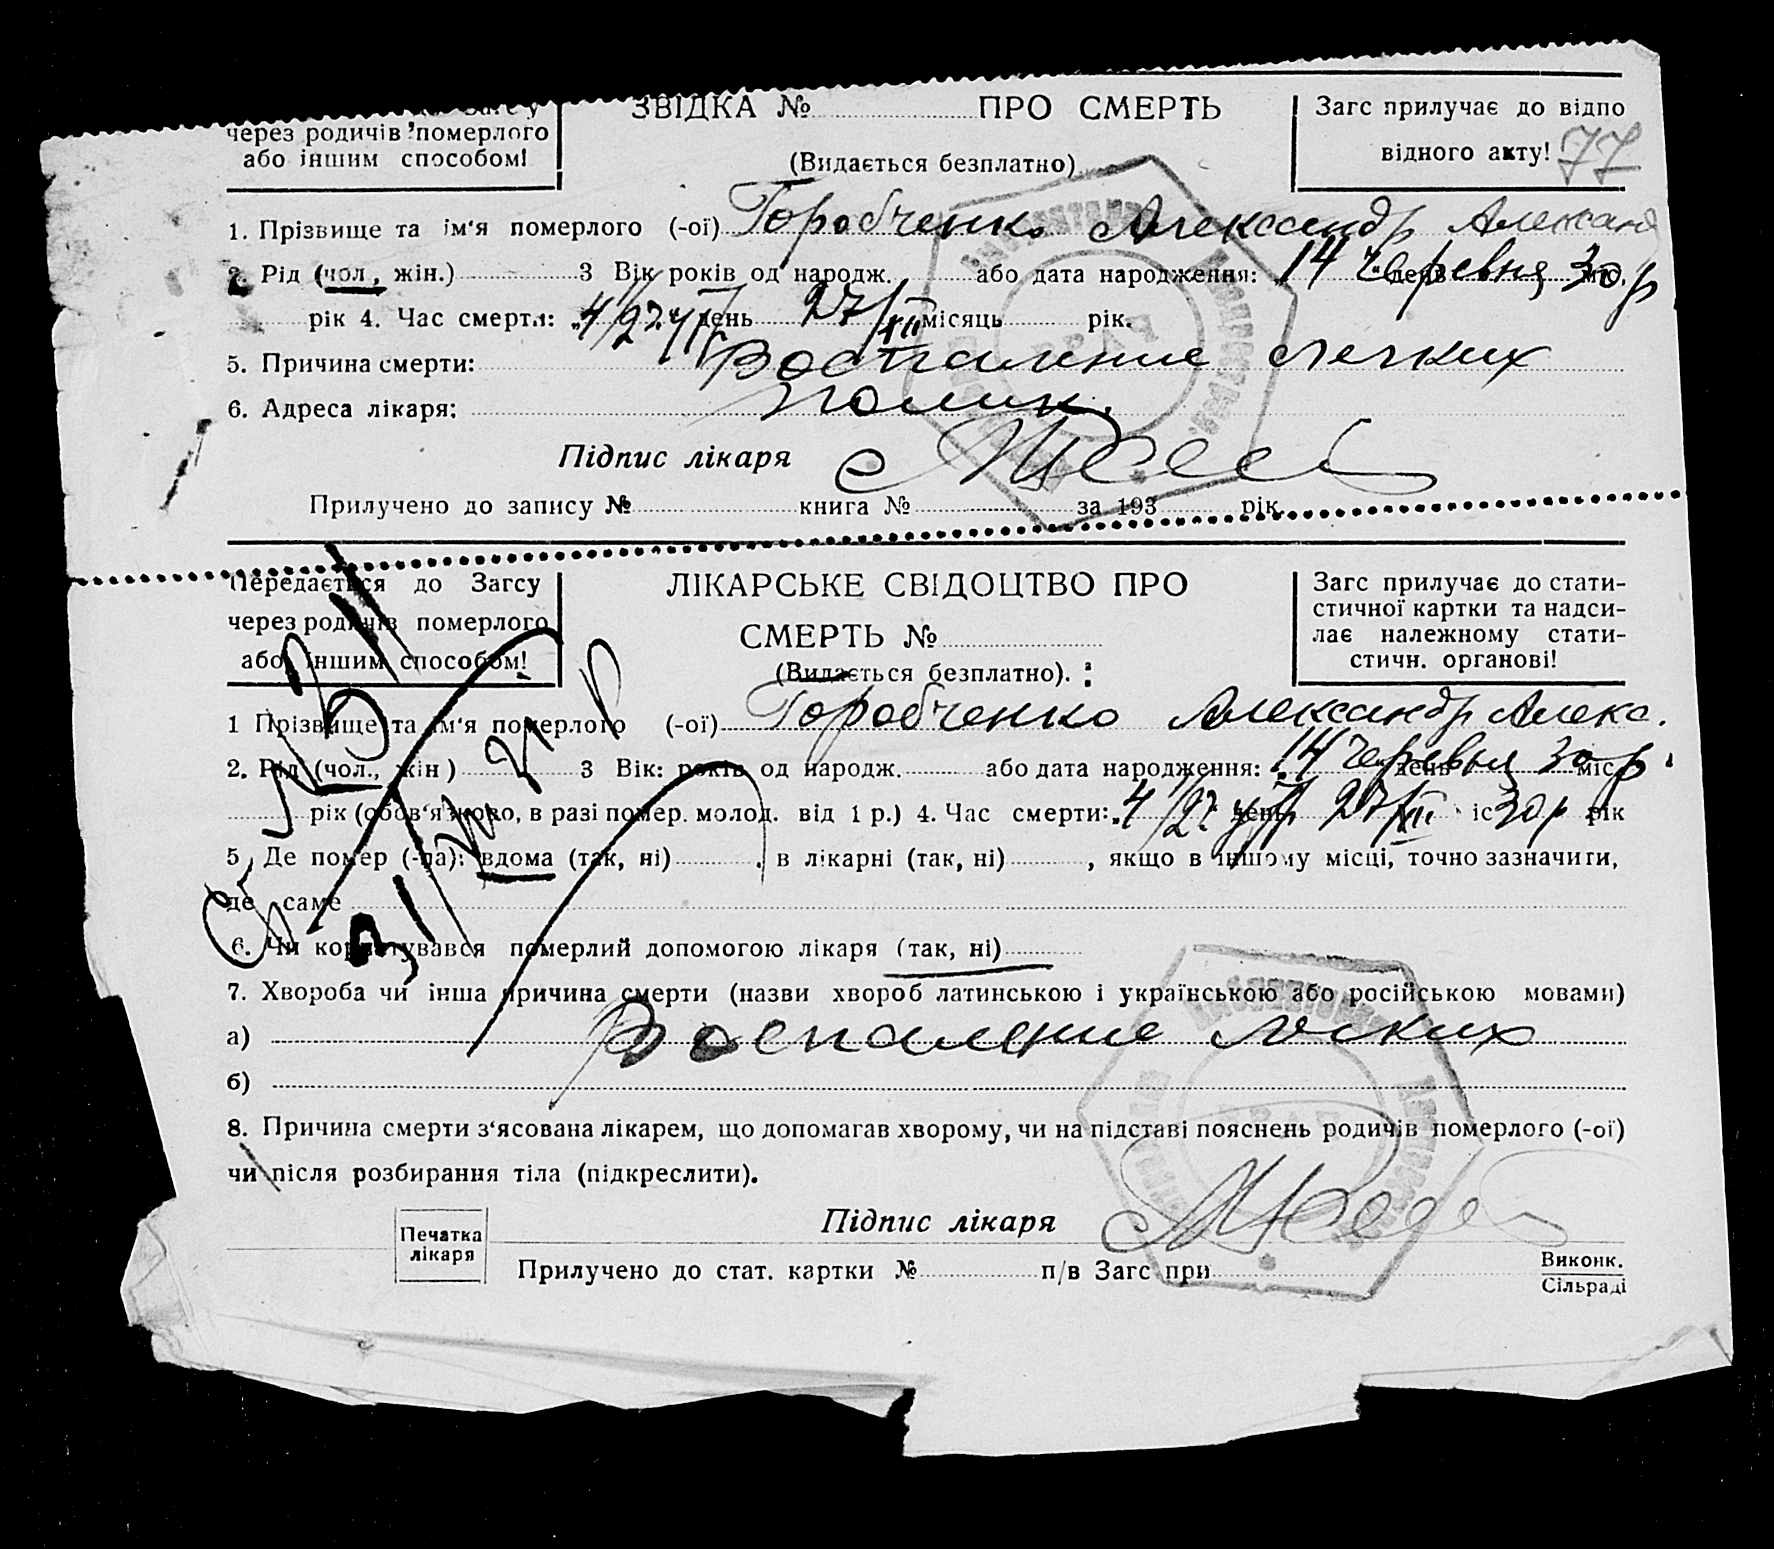 через родичів померлого
або іншим способом!
ЗВІДКА № ПРО СМЕРТЬ
(Видається безплатно)
Загс прилучає до відпо
відного акту! 77
1. Прізвище та ім'я померлого (-ої) Горобченко Александр Александ
2. Рід (чол., жін.) 3 Вік років од народж. або дата народження: 14 червня день міс. 30 р
рік 4. Час смерти: „ день 27/XII місяць рік.
5. Причина смерти: Воспаление легких
6. Адреса лікаря:
Підпис лікаря
Прилучено до запису № книга № за 193 рік
Передається до Загсу
через родичів померлого
або іншим способом!
ЛІКАРСЬКЕ СВІДОЦТВО ПРО
СМЕРТЬ №
(Видається безплатно).
Загс прилучає до стати-
стичної картки та надси-
лає належному стати-
стичн. органові!
1 Прізвище та ім'я померлого (-ої) Горобченко Александр Алекс.
2. Рід (чол., жін) 3 Вік: років од народж. або дата народження: 14 червня день 30 р. міс
рік (обов'язково, в разі помер. молод. від 1 р.) 4. Час смерти: „ день 27/XII іс 30 р рік
5, Де помер (-ла): вдома (так, ні) , в лікарні (так, ні) , якщо в іншому місці, точно зазначити,
де саме
6. Чи користувався померлий допомогою лікаря (так, ні)
7. Хвороба чи інша причина смерти (назви хвороб латинською і українською або російською мовами)
а) Воспаление легких
б)
8. Причина смерти з'ясована лікарем, що допомагав хворому, чи на підставі пояснень родичів померлого (-ої)
чи після розбирання тіла (підкреслити).
Печатка
лікаря
Підпис лікаря
Прилучено до стат. картки № п/в Загс при Виконк.
Сільраді